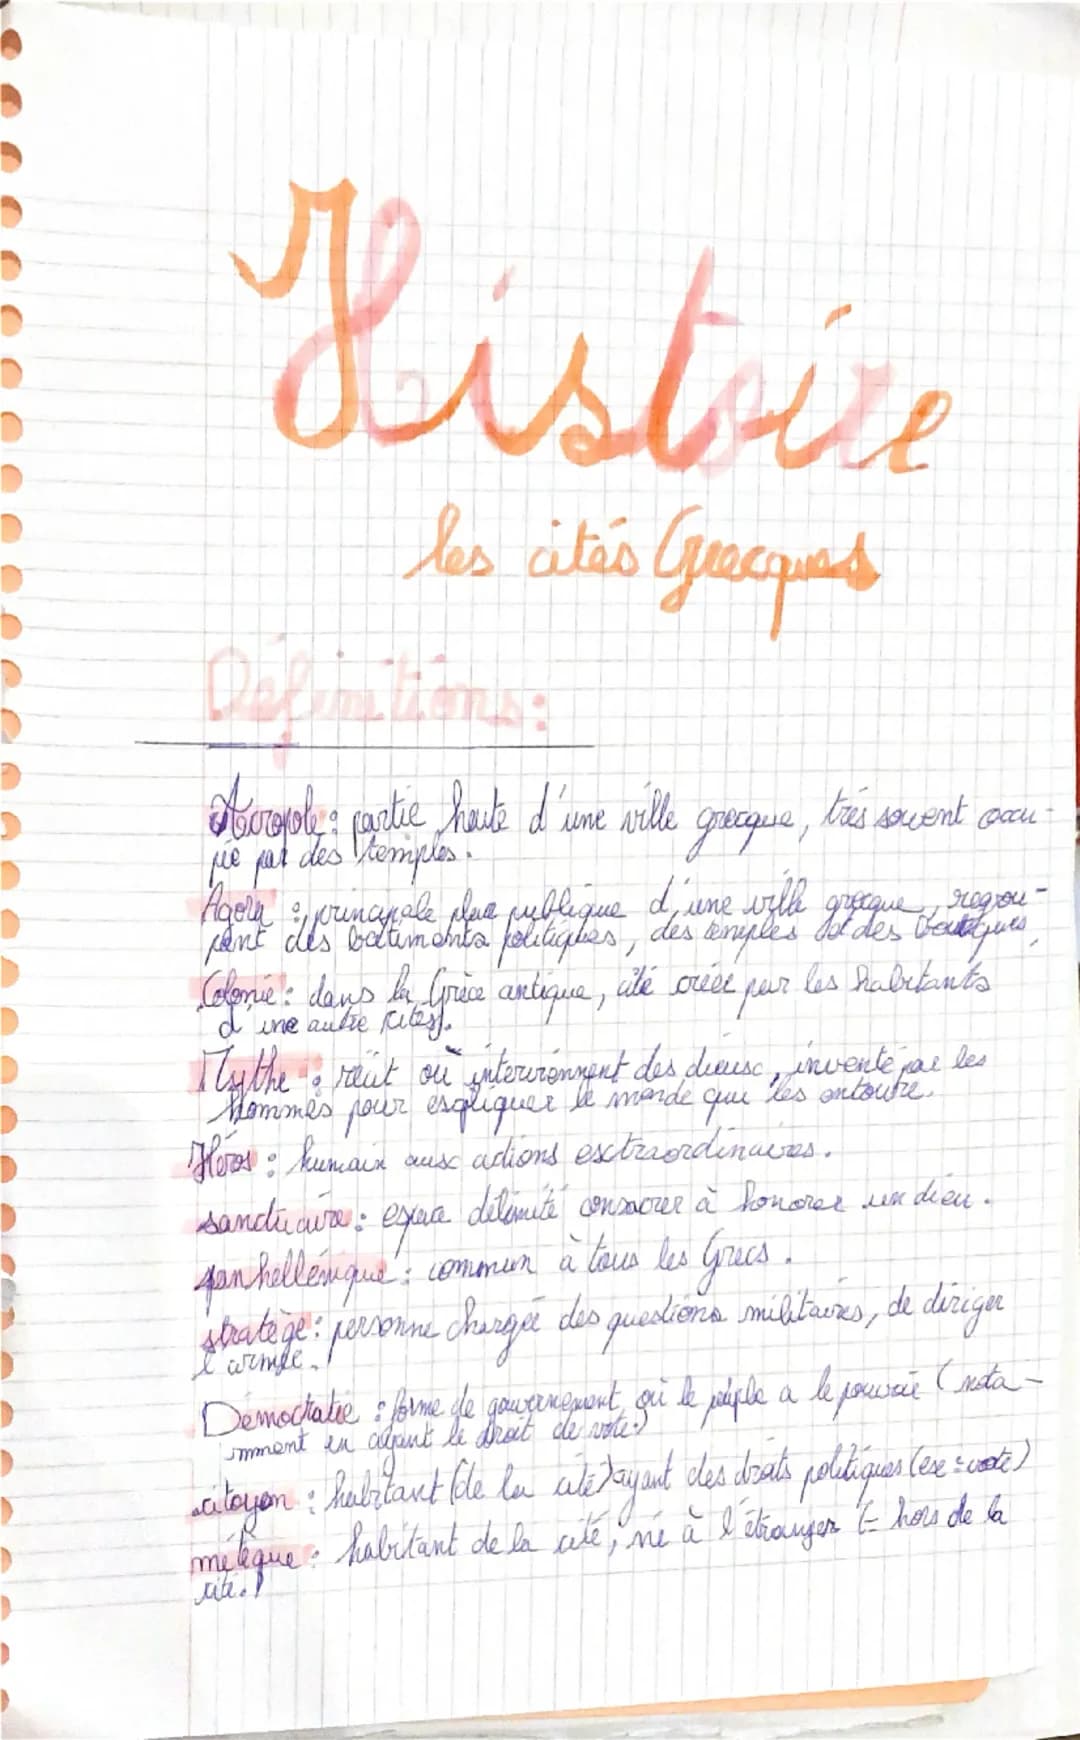 Histoire
les cités Grecques
Définitions:
Acropole : partie haute d'une ville grecque, très souvent occu-
pée par des temples.
Agora : principale place publique d'une ville grecque, regrou-
pant des batiments politiques, des temples et des boutiques.
Colonie : dans la Grèce antique, cité créée par les habitants
d'une autre cité.
Mythe : récit où interviennent des dieux, inventé par les
hommes pour expliquer le monde qui les entoure.
Héros : humain aux actions extraordinaires.
sanctuaire : espace délimité consacrer à honorer un dieu.
panhellénique : commun à tous les Grecs.
stratège : personne chargée des questions militaires, de diriger
l'armée.
Démocratie : forme de gouvernement où le peuple a le pouvoir (nota-
mment en ayant le droit de vote.)
citoyen : habitant (de la cité) ayant des droits politiques (ex : vote)
métèque : habitant de la cité, né à l'étranger (= hors de la
cité.)